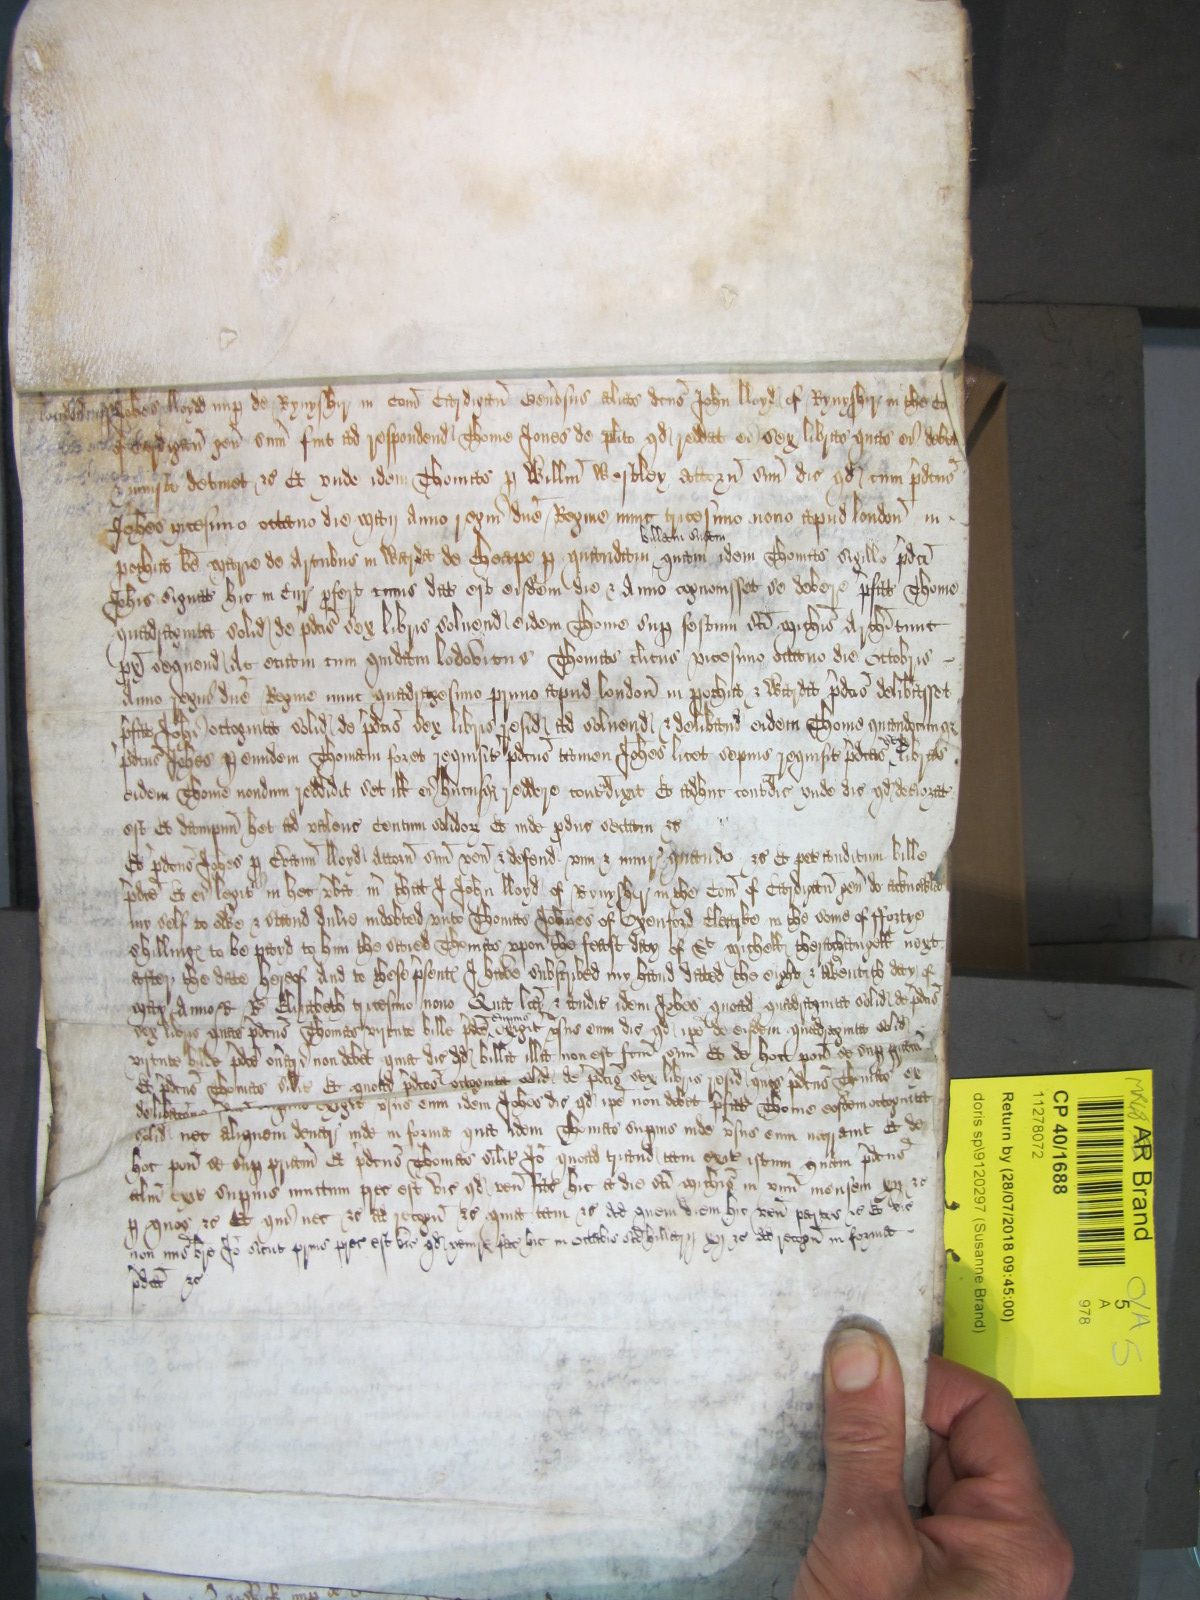 London Johes lloyd nup de Rynyshir in Com Cardigan Generosus alias dcus John lloyd of Rynyshir in the Co
of Cardigan gen sum fuit ad respondend Thome Jones de plito qd reddat ei sex libras quas ei debet
& iniuste detinet &c Et unde idem Thomas p Willm Westley attorn suu dic qd cum pdcus
Johes vicesimo octavo die Maii Anno regni dne Regine nunc tricesimo nono apud london in
pochia be Marie de Arcubus in Warda de Cheape p quandam billam suam quam idem Thomas sigillo pdci
Johis signat hic in Cur profert cuius dat est eisdem die & Anno cognovisset se debere pfat Thome
quadraginta solid de pdcis sex libris solvend eidem Thome sup festum sci Michis Archi tunc
px sequend Ac etiam cum quidam lodovicus Thomas clicus vicesimo octavo die Octobris
Anno regni dne Regine nunc quadragesimo primo apud london in pochia & Warda pdcis delibasset
pfat Johi octoginta solid de pdcis sex libris resid ad solvend & deliband eidem Thome quandocumq
pdcus Johes p eundem Thomam foret requisit pdcus tamen Johes licet sepius requisit pdcas sex libras
eidem Thome nondum reddidit set ill ei hucusq reddere contradixit Et adhuc contradic unde dic qd deteriorat
est Et dampnu het ad valenc Centum solidor Et inde producit sectam &c
Et pdcus Johes p Evanu lloyd Attorn suu ven & defend vim & iniur quando &c Et pet auditum bille
pdce Et ei legit in hec verba md that I John lloyd of Rynyshir in the Com of Cardigan gen do acknowledge
my self to owe & stand dulie indebted unto Thomas Johnes of Oxenford Clearke in the some of ffortye
shillings to be payd to him the sayed Thomas upon the feast day of St Michell tharchangell next
after the date hereof And to these psents I have subscribed my hand dated the eight & twentith day of
May Anno R Re Elizabeth tricesimo nono Qua lect & audit idem Johes quoad quadraginta solid de pdcis
sex libris quas pdcus Thomas virtute bille pdce superius exigit vsus eum dic qd ipe de eisdem quadraginta solid
virtute bille pdce onerari non debet quia dic qd billa illa non est fcm suu Et de hoc pon se sup priam
Et pdcus Thomas silit Et quoad pdcos octoginta solid de pdcis sex libris resid quos pdcus Thomas ex
delibacone superius exigit vsus eum idem Johes dic qd ipe non debet pfat Thome eosdem octoginta
solid nec aliquem denar inde in forma qua idem Thomas supius inde vsus eum narravit Et de
hoc pon se sup priam Et pdcus Thomas silit Io quoad triand tam exit istum quam pdcus
aliu exit supius iunctum prec est vic qd ven fac hic a die sci Michis in unu mensem xii &c
p quos &c Et qui nec &c ad recogn &c quia tam &c Ad quem diem hic ven partes &c Et vic
non mis bre Io sicut prius prec est vic qd venire fac hic in Octabis sci hillarii xii &c ad recogn in forma
pdca &c
MRD AR Brand
O/A 5
5
A
978
CP 40/1688
11278072
Return by (28/07/2018 09:45:00)
doris sp\9120297 (Susanne Brand)